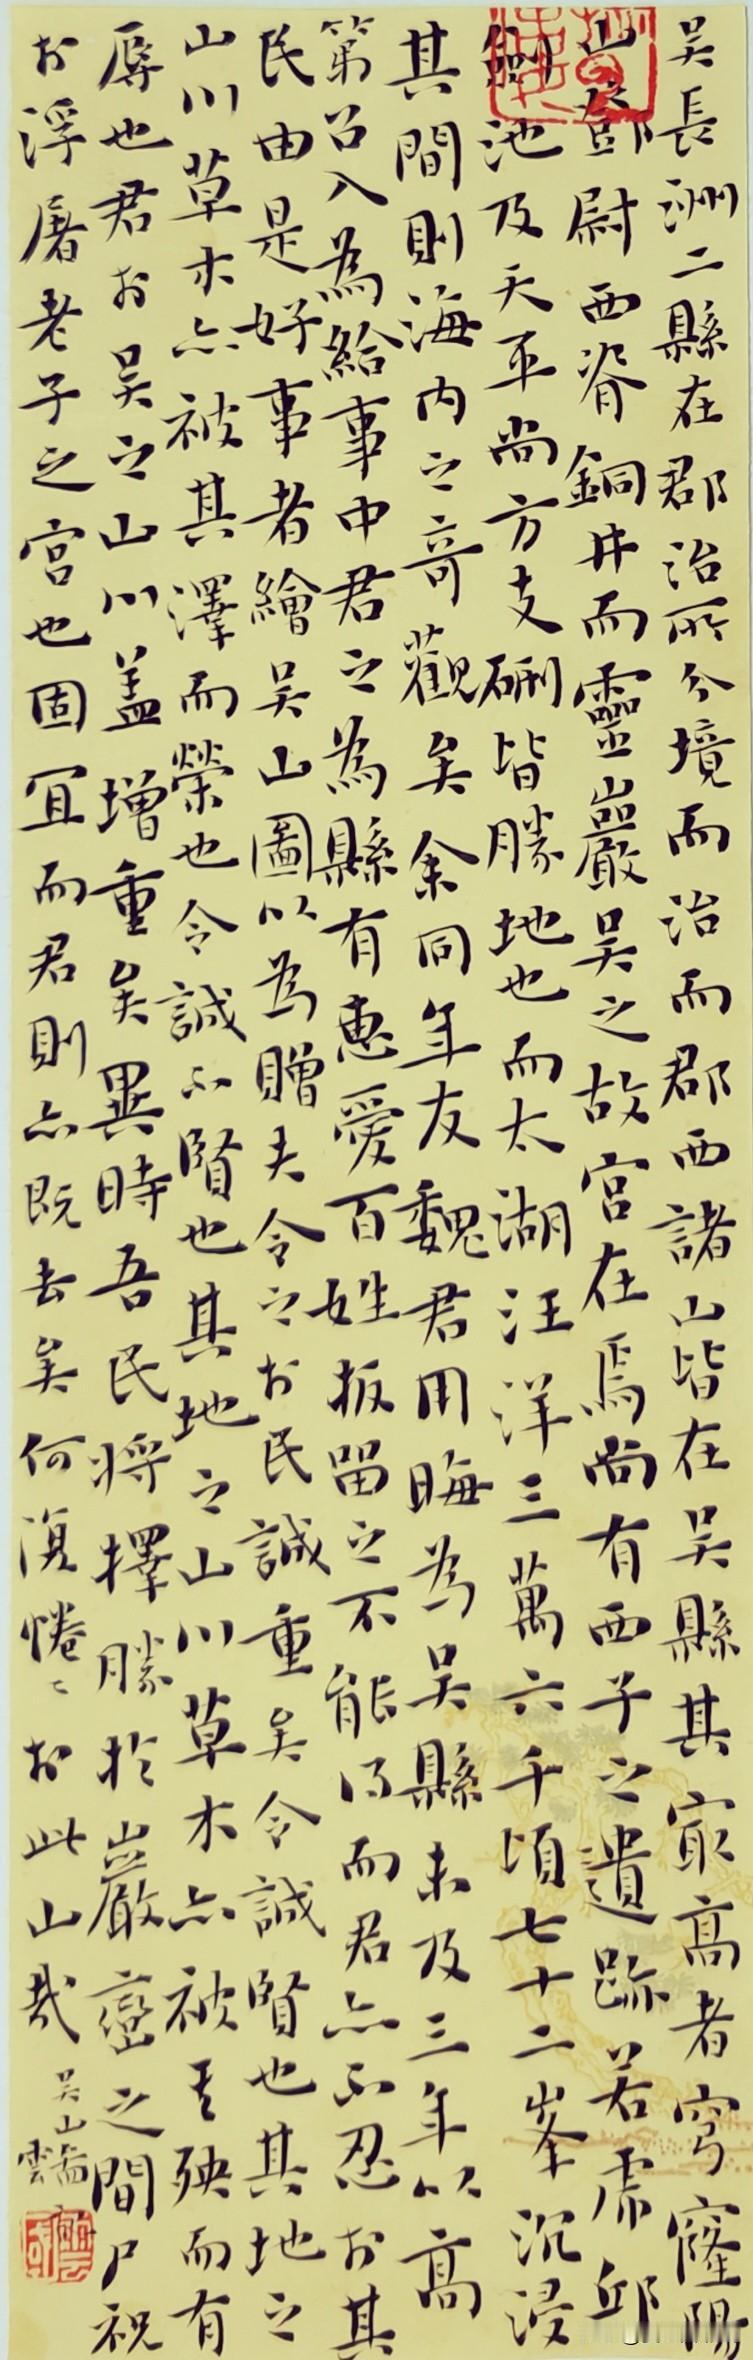 吴長洲二縣在郡治所分境而治而郡西諸山皆在吴縣其冣高者穹窿陽
山鄧尉西脊銅井而靈巖吴之故宫在焉尚有西子之遺跡若虎邱
劍池及天平尚方支硎皆勝地也而太湖汪洋三萬六千頃七十二峯沉浸
其間則海内之奇觀矣余同年友魏君用晦為吴縣未及三年以高
第召入為給事中君之為縣有惠愛百姓扳留之不能得而君亦不忍於其
民由是好事者繪吴山圖以為贈夫令之於民誠重矣令誠賢也其地之
山川草木亦被其澤而榮也令誠不賢也其地之山川草木亦被其殃而有
辱也君於吴之山川盖增重矣異時吾民將擇勝於巖巒之間尸祝
於浮屠老子之宫也固冝而君則亦既去矣何復惓〻於此山哉
吴山圖
雲